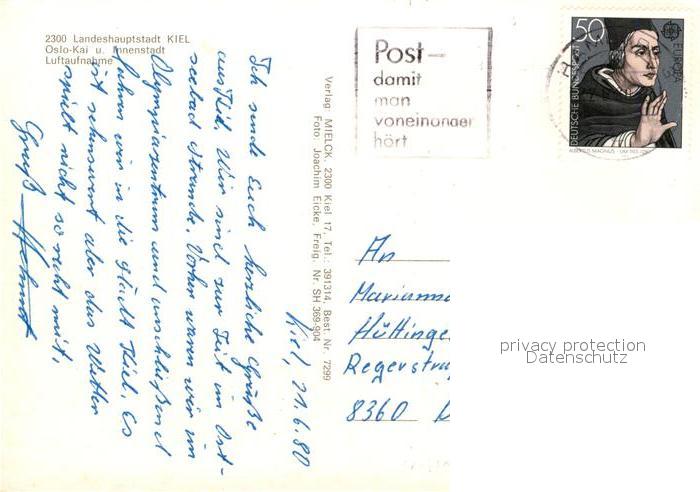 2300 Landeshauptstadt KIEL
Oslo-Kai u. Innenstadt
Luftaufnahme
Kiel, 21.6.80
Ich sende Euch herzliche Grüße
aus Kiel. Wir sind zur Zeit im Ost-
seebad Strande. Vorher waren wir im
Olympiazentrum und anschließend
fuhren wir in die Stadt Kiel. Es
ist sehenswert aber das Wetter
spielt nicht so recht mit.
Gruß Helmut
Verlag MIELCK, 2300 Kiel 17, Tel.: 391314, Best. Nr. 7299
Foto: Joachim Eicke, Freig. Nr. SH 369-904
Post-
damit
man
voneinander
hört
50
EUROPA
DEUTSCHE BUNDESPOST
ALBERTUS MAGNUS
An
Marianne
Hüttinge
Regerstra
8360
privacy protection
Datenschutz